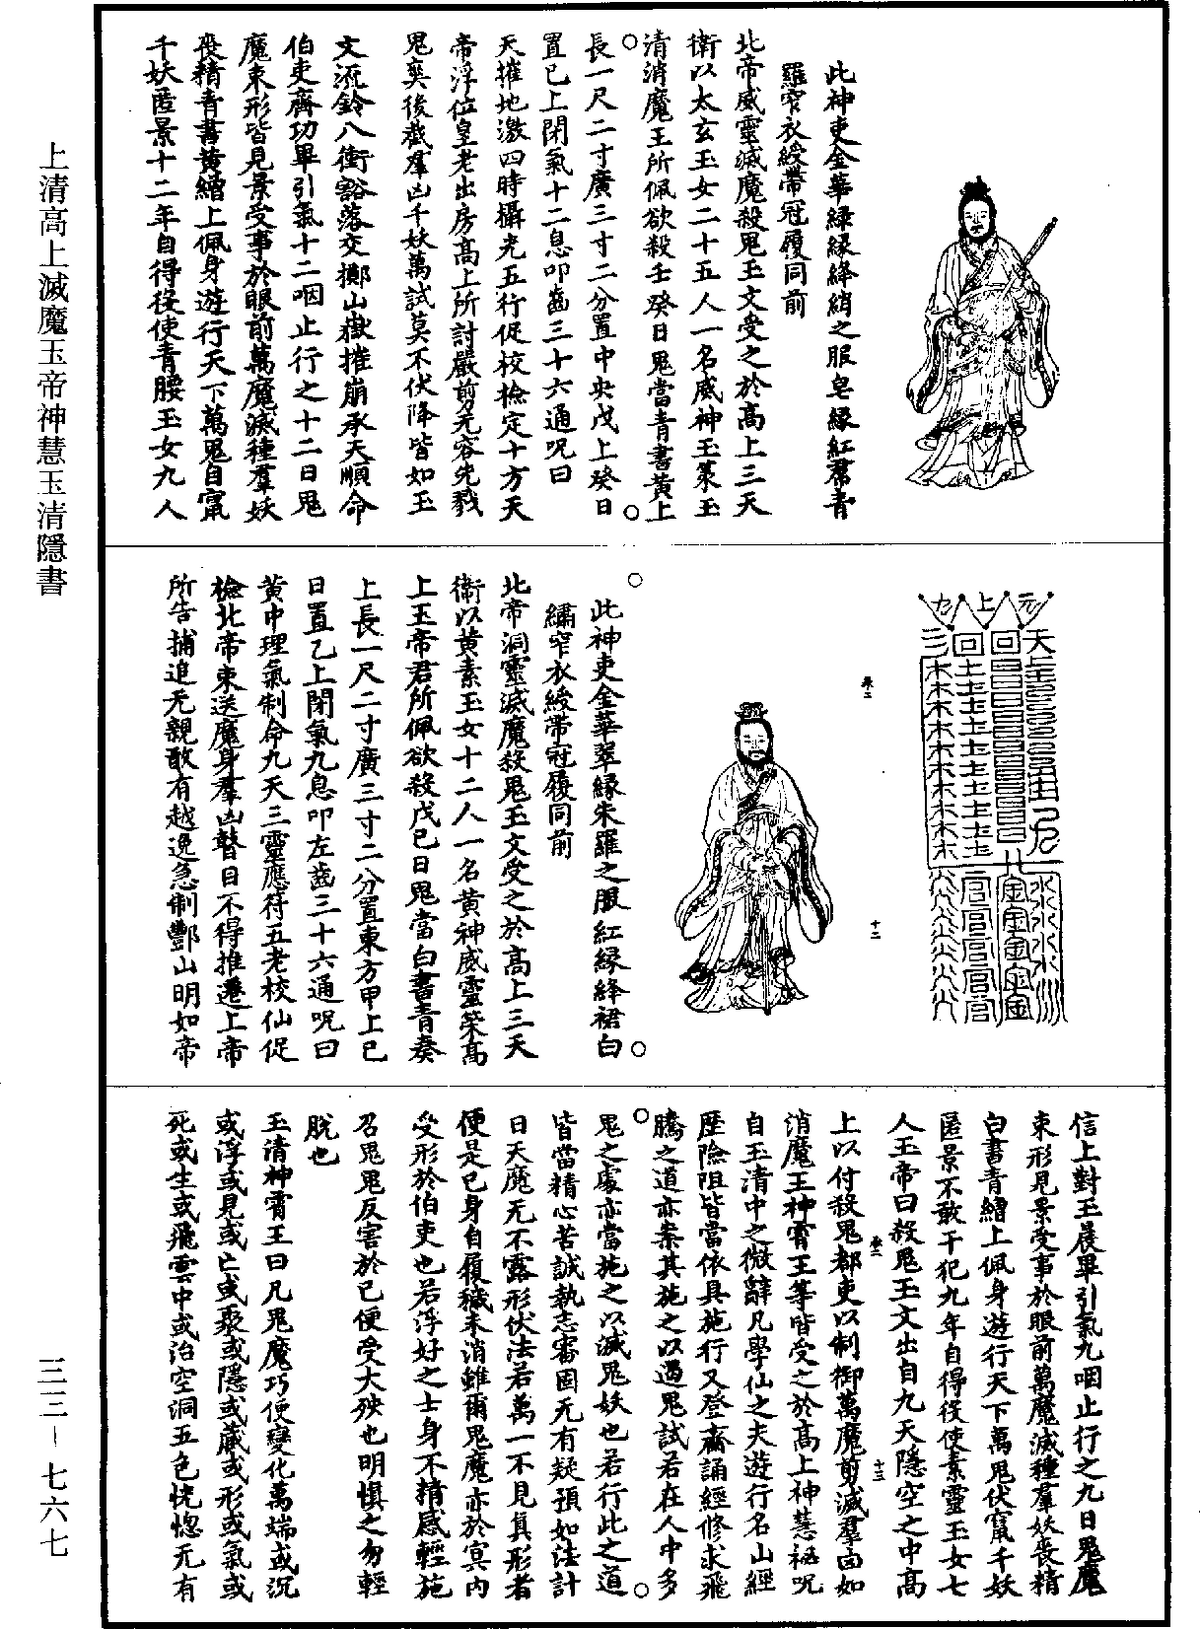 上清高上滅魔玉帝神慧玉清隱書
三三－七六七
此神吏金華綠緣絳綃之服皂緣紅裙青
羅窄衣綬帶冠履同前
北帝威靈滅魔殺鬼玉文受之於高上三天
衛以太玄玉女二十五人一名威神玉策玉
清消魔王所佩欲殺壬癸日鬼當青書黃上
長一尺二寸廣三寸二分置中央戊上癸日
置己上閉氣十二息叩齒三十六通呪曰
天摧地激四時攝光五行促校檢定十方天
帝浮位皇老出房高上所討嚴剪无容先戮
鬼葽後截羣凶千妖萬試莫不伏降皆如玉
文流鈴八衝豁落交擲山嶽摧崩承天順命
伯吏齊功畢引氣十二咽止行之十二日鬼
魔束形皆見景受事於眼前萬魔滅種羣妖
喪精青書黃繒上佩身遊行天下萬鬼自竄
千妖匿景十二年自得役使青腰玉女九人
元
上
九
天
回
回
三
卷二
十二
此神吏金華翠緣朱羅之服紅緣絳裙白
繡窄衣綬帶冠履同前
北帝洞靈滅魔殺鬼玉文受之於高上三天
衛以黃素玉女十二人一名黃神威靈策高
上玉帝君所佩欲殺戊己日鬼當白書青奏
上長一尺二寸廣三寸二分置東方甲上己
日置乙上閉氣九息叩左齒三十六通呪曰
黃中理氣制命九天三靈應符五老校仙促
檢北帝束送魔身羣凶瞽目不得推遷上帝
所告捕追无親敢有越逸急制酆山明如帝
信上對玉晨畢引氣九咽止行之九日鬼魔
束形見景受事於眼前萬魔滅種羣妖喪精
白書青繒上佩身遊行天下萬鬼伏竄千妖
匿景不敢干犯九年自得役使素靈玉女七
人玉帝曰殺鬼玉文出自九天隱空之中高
卷二
十三
上以付殺鬼都吏以制御萬魔剪滅羣凶如
消魔王神霄王等皆受之於高上神慧祕呪
自玉清中之微辭凡學仙之夫遊行名山經
歷險阻皆當依具施行又登齋誦經修求飛
騰之道亦案其施之以過鬼試若在人中多
鬼之處亦當施之以滅鬼妖也若行此之道
皆當精心苦誠執志審固无有疑預如法計
日天魔无不露形伏法若萬一不見真形者
便是己身自履穢未消雖爾鬼魔亦於冥內
受形於伯吏也若浮好之士身不精感輕施
召鬼鬼反害於己便受大殃也明慎之勿輕
脫也
玉清神霄王曰凡鬼魔巧便變化萬端或沉
或浮或見或亡或聚或隱或藏或形或氣或
死或生或飛雲中或治空洞五色恍惚无有